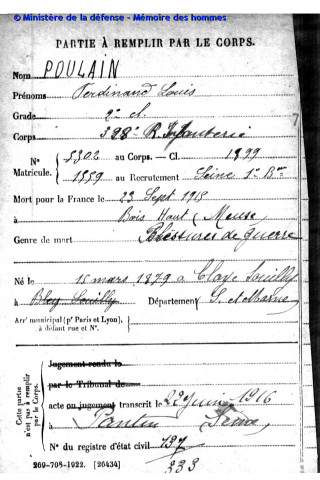 © Ministère de la défense - Mémoire des hommes
PARTIE À REMPLIR PAR LE CORPS.
Nom POULAIN
Prénoms Ferdinand Louis
Grade 2e cl.
Corps 328e R. Infanterie
N° 5302 au Corps. — Cl. 1899
Matricule. 1559 au Recrutement Seine 1er Bau
Mort pour la France le 22 Sept 1915
à Bois Haut (Meuse)
Genre de mort Blessures de guerre
Né le 15 mars 1879 à Claye Souilly
à Département S. et Marne
Arrt municipal (pr Paris et Lyon),
à défaut rue et N°.
Cette partie
n'est pas à remplir
par le Corps.
Jugement rendu le
par le Tribunal de
acte ou jugement transcrit le 22 juin 1916
à Pantin Seine
N° du registre d'état civil 137
333
269-708-1922. [26434]